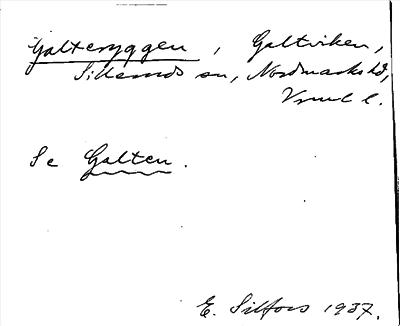 Galteryggen, Galtviken,
Silleruds sn, Nordmarks hd,
Vrml l.
Se Galten.
E. Silfors 1937.